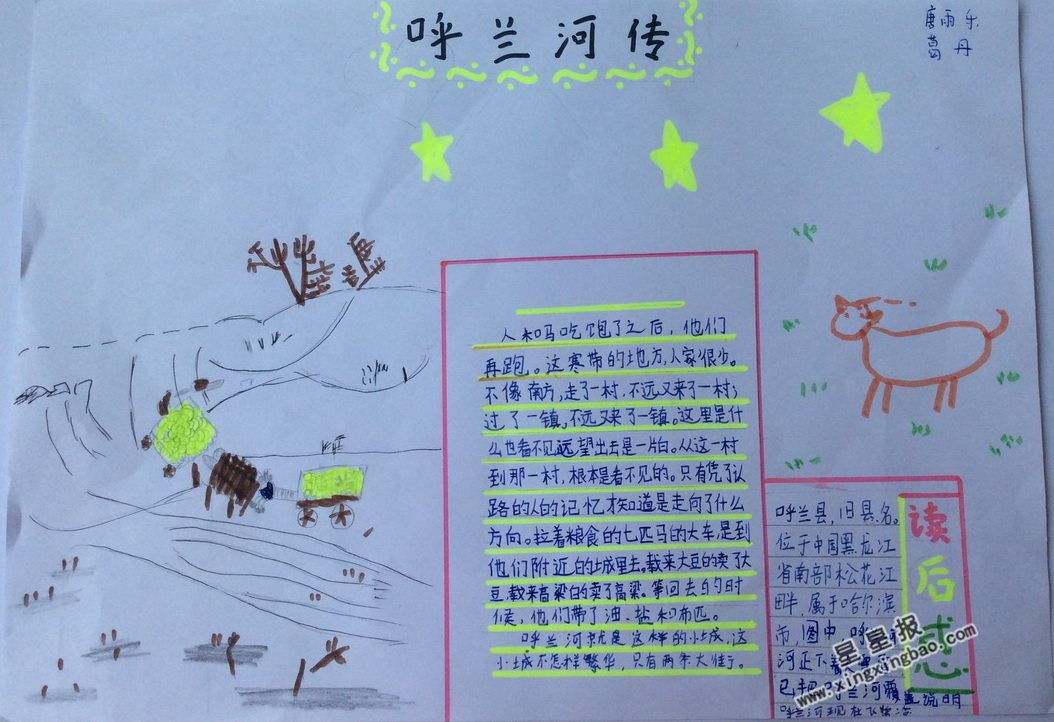 呼兰河传
唐雨乐
葛丹
人和马吃饱了之后，他们
再跑。这寒带的地方，人家很少。
不像南方，走了一村，不远又来了一村；
过了一镇，不远又来了一镇。这里是什
么也看不见，远望出去是一片白。从这一村
到那一村，根本是看不见的。只有凭了认
路的人的记忆才知道是走向了什么
方向。拉着粮食的七匹马的大车，是到
他们附近的城里去。载来大豆的卖了大
豆，载来高粱的卖了高粱。等回去的时
候，他们带了油、盐和布匹。
呼兰河就是这样的小城，这
小城不怎样繁华，只有两条大街。
读后感
呼兰县，旧县名。
位于中国黑龙江
省南部松花江
畔，属于哈尔滨
市，图中，呼
河正下
已把呼兰河覆盖说明
呼兰河现在
星星报
www.xingxingbao.com